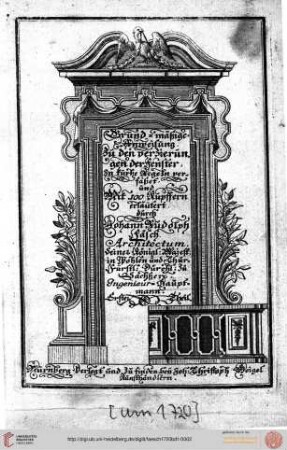 Gründ-mäßige
Anweisung
Zu den Verzierun-
gen der Fenster.
In kurtze Regeln ver-
faßet
und
Mit 100 Kupffern
erläutert
durch
Johann Rudolph
Fäsch
Architectum,
Seiner Königl: Majest:
in Pohlen und Chur
Fürstl: Durchl: zu
Sachßen
Ingenieur-Haupt-
mann.
Erster Theil.
Nürnberg Verlegt und zu finden beÿ Joh: Christoph Weigel
Kunsthändlern.
[um 1720]
http://digi.ub.uni-heidelberg.de/diglit/